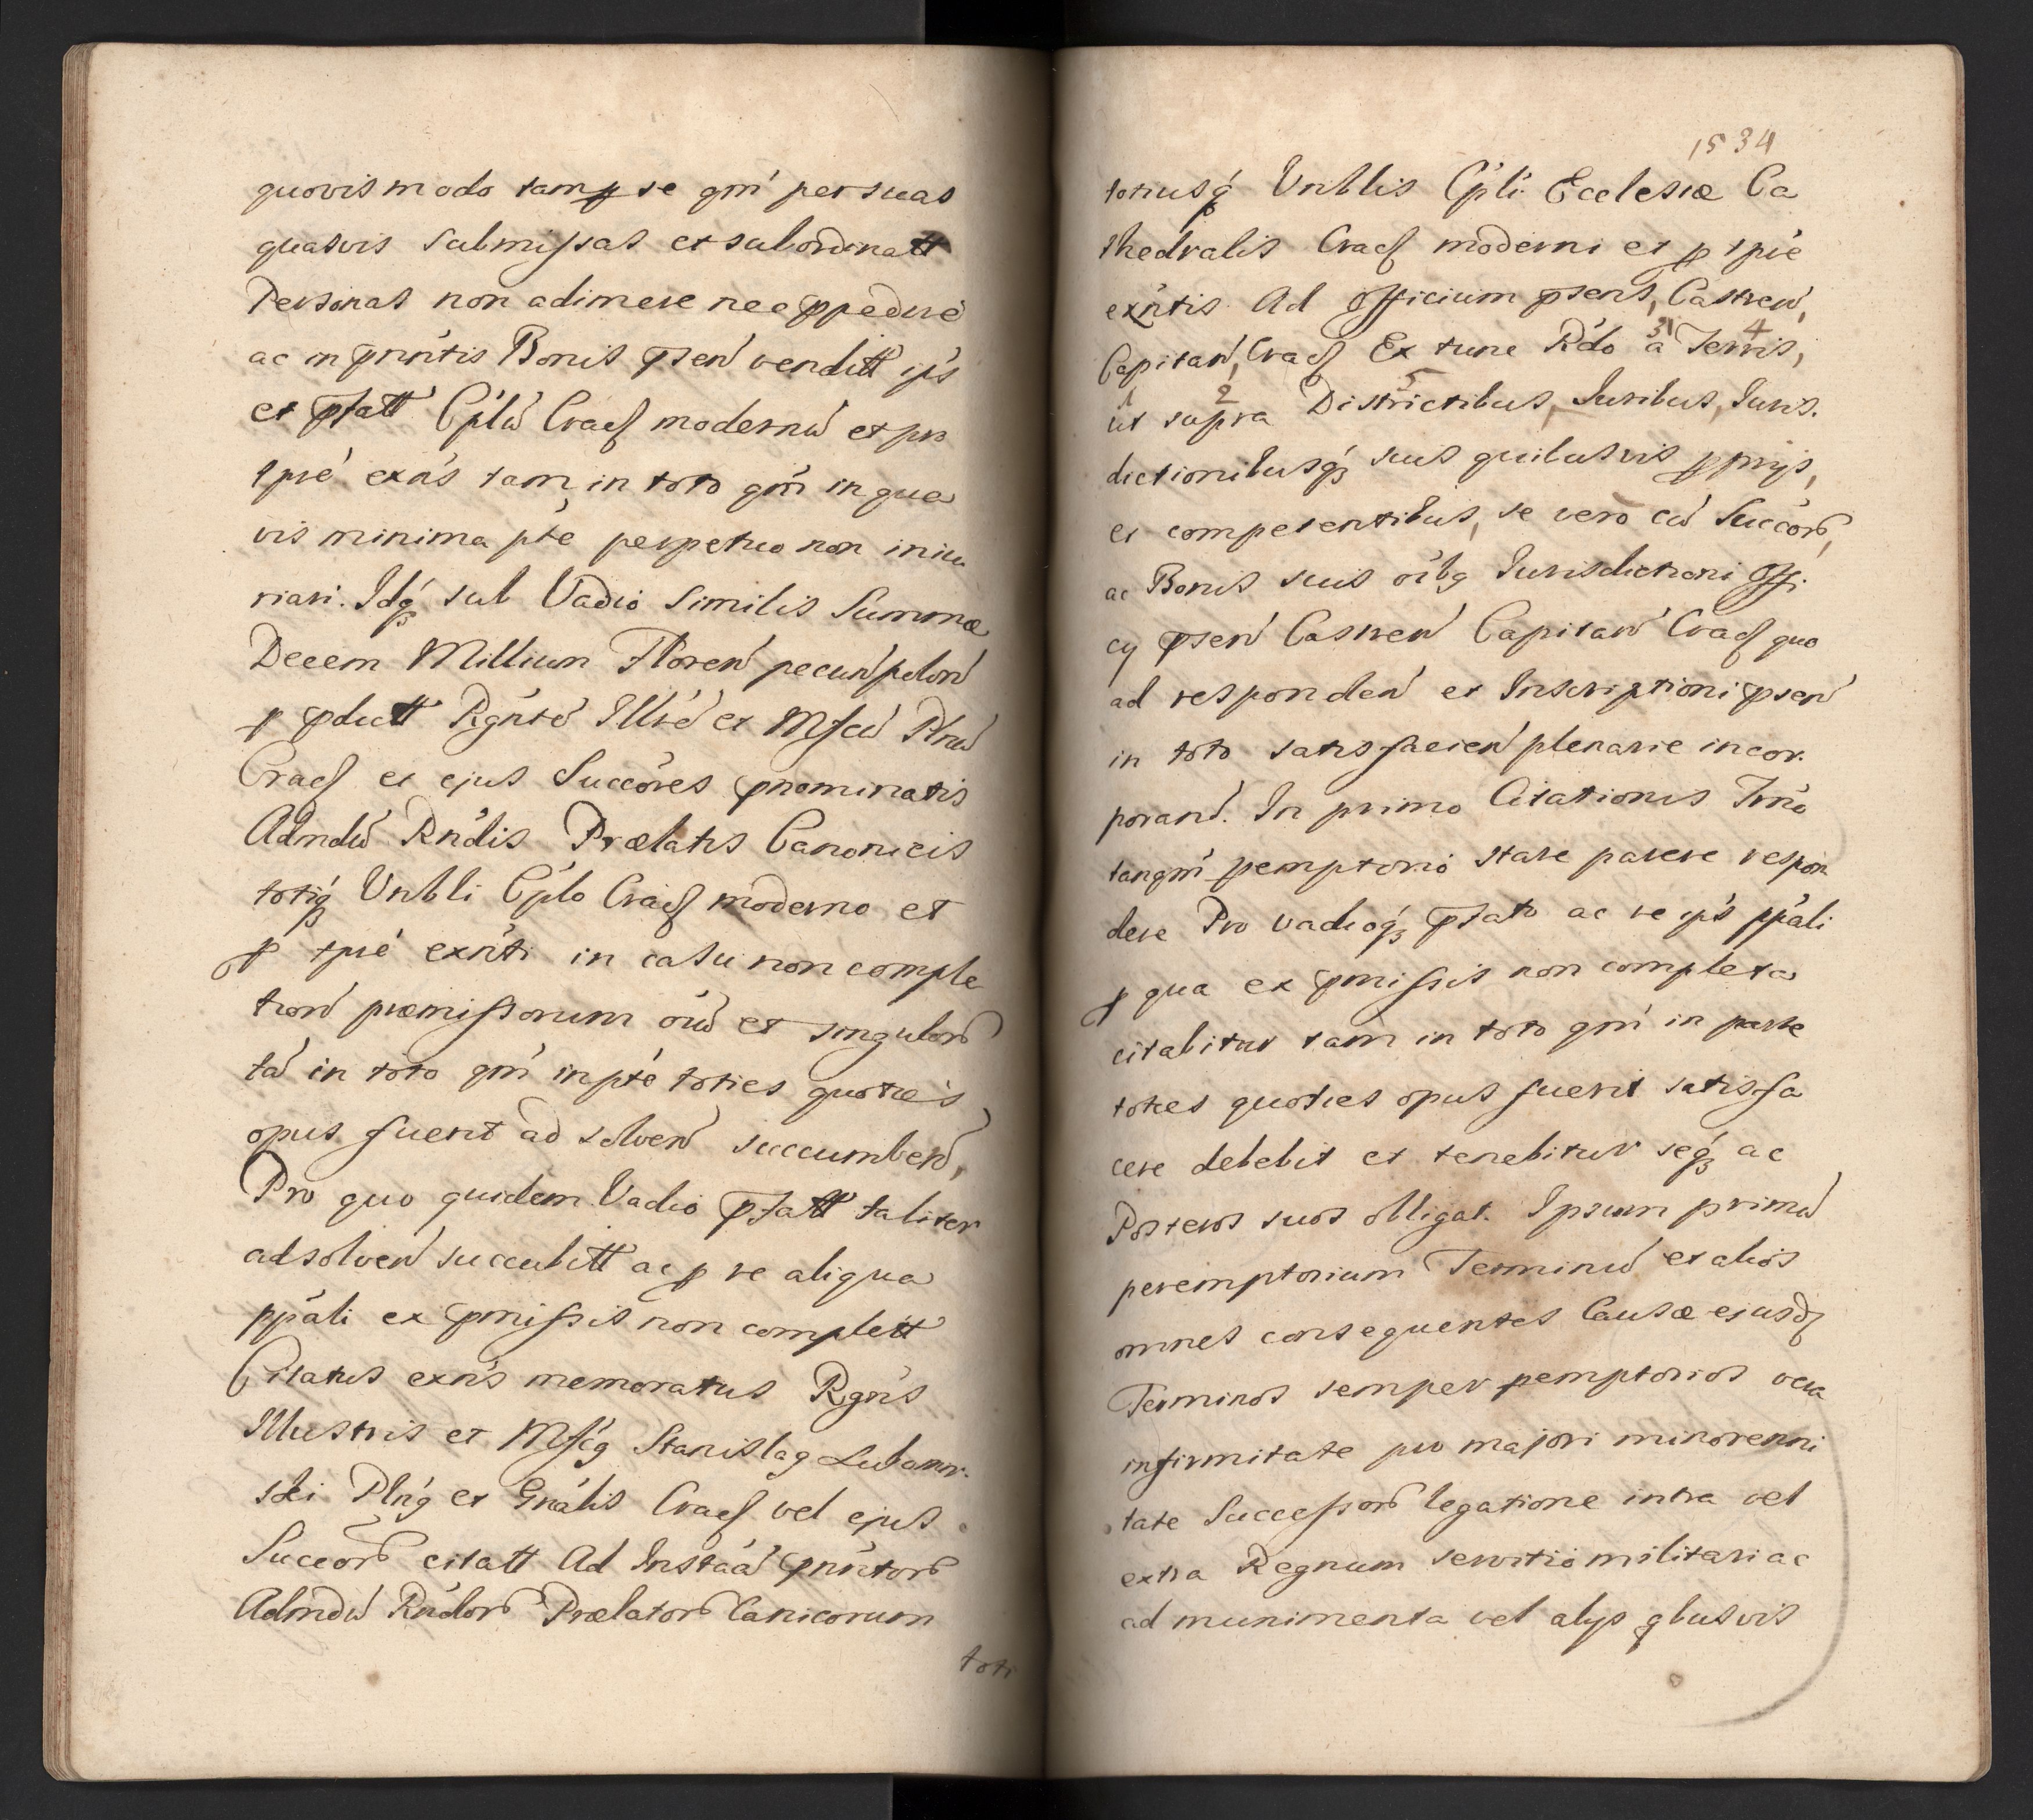 quovis modo tam p se qm̃ per suas
quasvis submissas et subordinatt
Personas non adimere nec ppedire
ac in prntis Bonis psen venditt ips
et pfatt Cplu Cracς modernu et pro
tpre exn̄s tam in toto qm̃ in qua
vis minima pte perpetuo non iniu
riari. Idq̃ sub Vadio similis Summæ
Decem Millium Floren pecun polon
p pdictt Rgnte Illre et Mfcu Plnu
Cracς et ejus Succores pnominatis
Admdu Rndis Prælatis Canonicis
totiq̃ Vnbli Cplo Cracς moderno et
p tpre exn̄ti in casu non comple
tion præmissorum oiu et singulor
ta in toto qm̃ in pte toties quoties
opus fuerit ad solven succumben,
Pro quo quidem Vadio pfatt taliter
ad solven succubitt ac p re aliqua
ppali ex pmissis non complett
Citatus exn̄s memoratus Rgns
Illustris et Mfcg Stanislag Lubomir.
ski Plng et Gnalis Cracς vel ejus
Succor citatt Ad Instaa pnntor
Admdu Rndor Prælator Canicorum
toti
1534
toriusq̃ Vnblis Cpli Ecclesiæ Ca
thedralis Cracς moderni et p tpre
exn̄tis Ad Officium psens, Castren,
Capitan, Cracς Ex tunc Rdo a 3 Terris, 4
ut 1 supra 2 Districtibus, 5 Iuribus, Iuris.
dictionibusq̃ suis quibusvis pprijs,
et competentibus, se vero cu Succor,
ac Bonis suis oibg Iurisdictioni Offi.
cij psen Castren Capitan Cracς quo
ad responden et Inscriptioni psen
in toto satisfacien plenarie incor.
porand. In primo Citationis Trno
tanqm̃ pemptorio stare parere respon
dere Pro vadioq̃ pfato ac re ips ppali
p qua ex pmissis non completa
citabitur tam in toto qm̃ in parte
toties quoties opus fuerit satisfa
cere debebit et tenebitur seq̃ ac
Posteros suos obligat. Ipsum primu
peremptorium Terminu et alios
omnes consequentes Causæ ejusdς
Terminos semper pemptorios vera
infirmitate pro majori minorenni
tate Successor legatione intra vel
extra Regnum servitio militari ac
ad munimenta vel alijs qbusvis